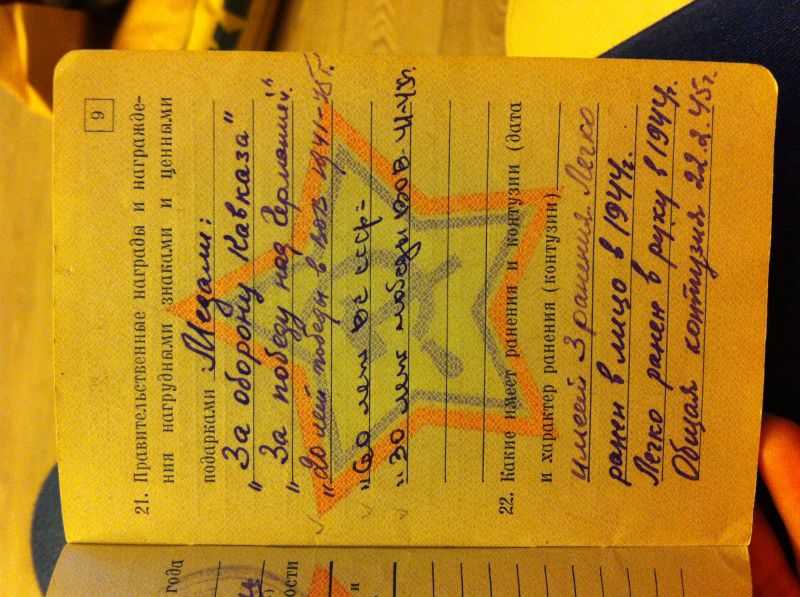 9
21. Правительственные награды и награжде-
ния нагрудными знаками и ценными
подарками Медали:
"За оборону Кавказа"
"За победу над Германией"
"20 лет победы в ВОВ 1941-45г.
"60 лет ВС СССР=
"30 лет победы ВОВ-41-45г.
22. Какие имеет ранения и контузии (дата
и характер ранения (контузии)
имеет 3 ранения. Легко
ранен в лицо в 1944г.
Легко ранен в руку в 1944г.
Общая контузия 22.2.45г.
года
ости
и